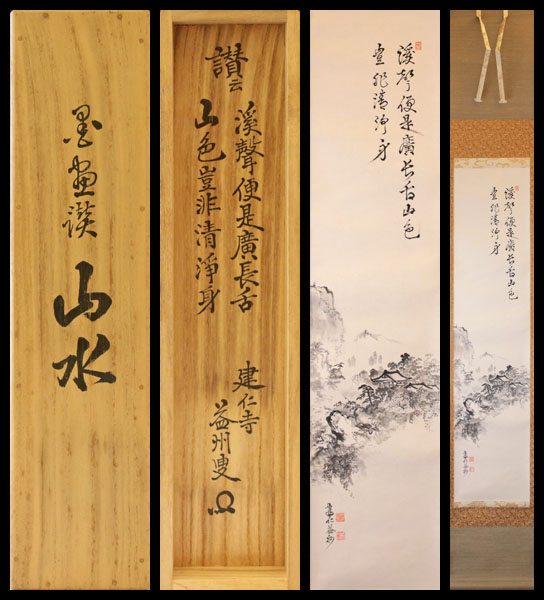 墨画讃
山水
讃云
溪聲便是廣長舌
山色豈非清淨身
建仁寺
益州叟
溪聲便是廣長舌山色
豈非清淨身
建仁益州
溪聲便是廣長舌山色
豈非清淨身
建仁益州